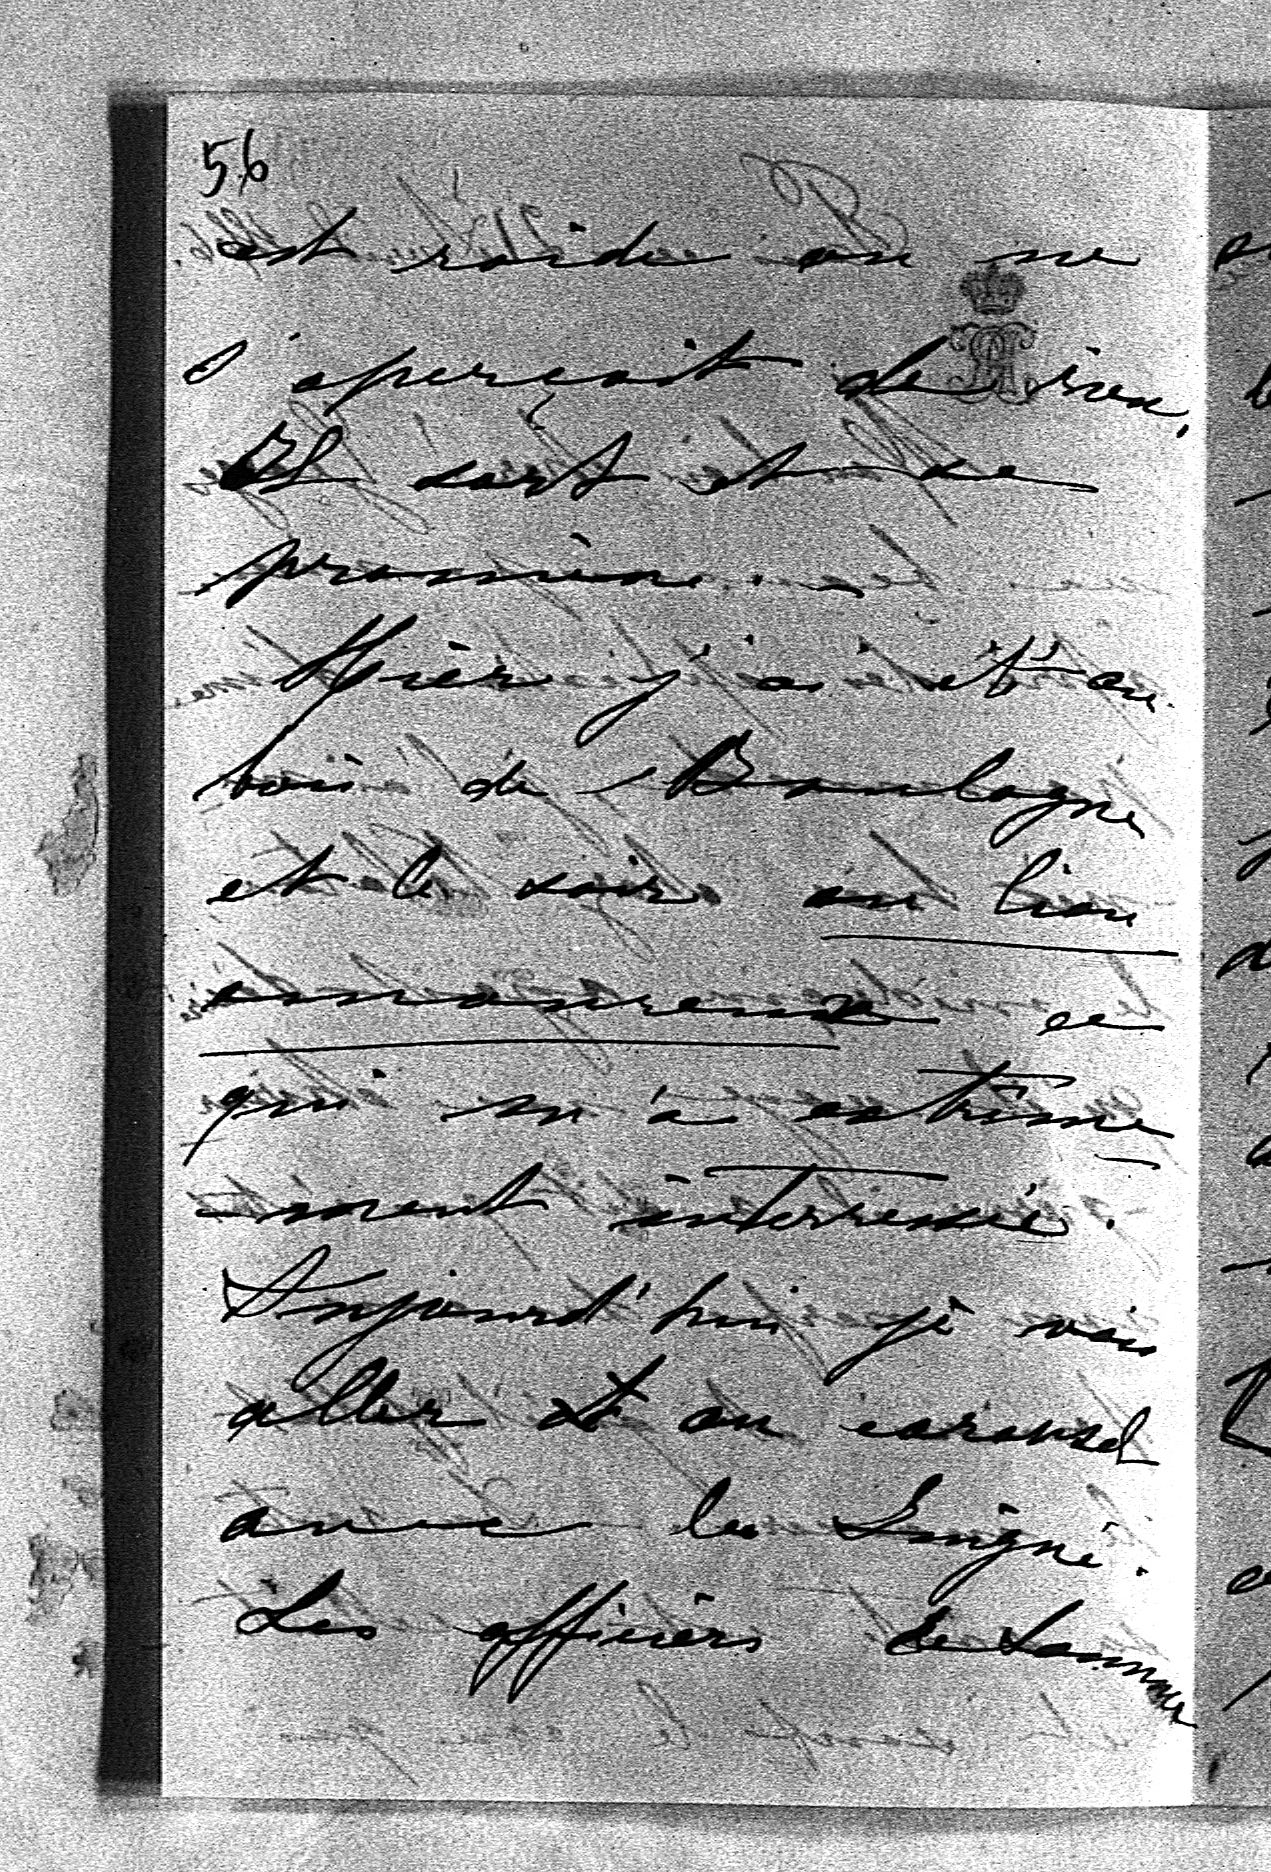 56
est roide on ne
s'aperçoit de rien.
Il sort et se
promène.
Hier j'ai été au
bois de Boulogne
et le soir au lion
amoureux ce
qui m'a extrême
-ment intérressée.
Aujourd'hui je vais
aller et au carousel
avec les
Les officiers de Saumur